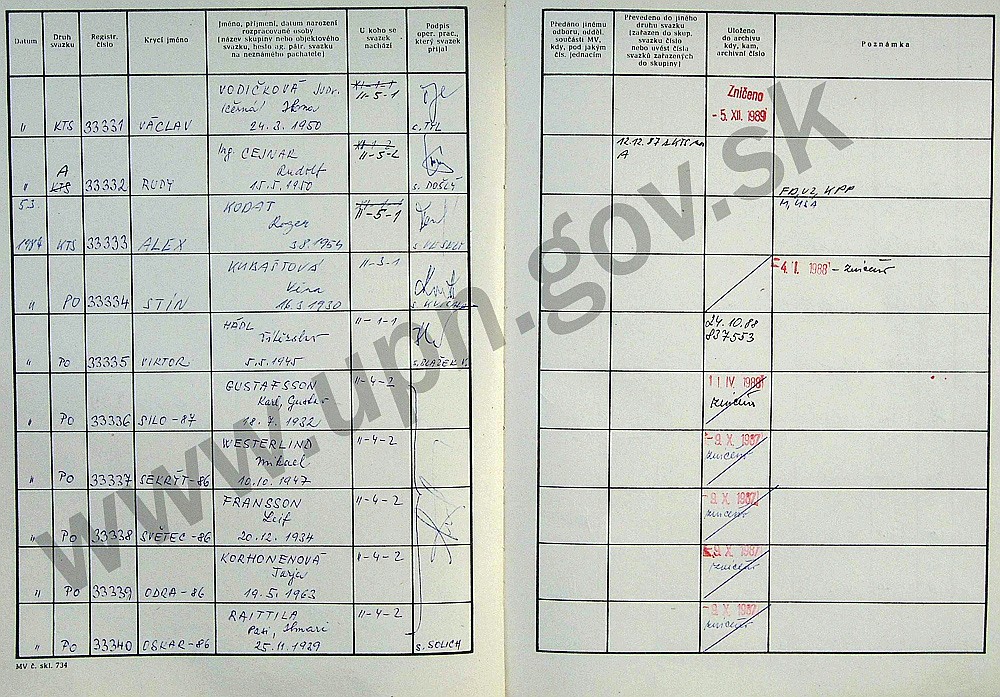 Datum
Druh svazku
Registr. číslo
Krycí jméno
Jméno, příjmení, datum narození
rozpracované osoby
(název skupiny nebo objektového
svazku, heslo ag. pátr. svazku
na neznámého pachatele)
U koho se
svazek
nachází
Podpis
oper. prac.,
který svazek
přijal
Předáno jinému
odboru, odděl.
součásti MV,
kdy, pod jakým
čís. jednacím
Převedeno do jiného
druhu svazku
(zařazen do skup.
svazku číslo
nebo uvést čísla
svazků zařazených
do skupiny)
Uloženo
do archivu
kdy, kam,
archivní číslo
Poznámka
VODIČKOVÁ JUDr. XI-1-1
(Černá) Ilona II-5-1
" KTS 33331 VÁCLAV 24.3.1950 s. TYL
Zničeno
-5. XII. 1989
Ing. CEJNAR XI-1-2
A Rudolf II-5-2
" KTS 33332 RUDY 15.5.1950 s. DOŠLÝ
12.12.87 z KTS na
A
53. KODAT II-5-1
Roger
1987 KTS 33333 ALEX 3.8.1954
M, USA
KUBAŠTOVÁ II-3-1
Věra
" PO 33334 STÍN 16.3.1930
4. II. 1988 - zničení
HÁDL II-1-1
" PO 33335 VIKTOR 5.5.1945 s. BLAŽEK V.
24.10.88
837553
GUSTAFSSON II-4-2
Karl, Gustav
" PO 33336 SILO-87 18.7.1932
IV. 1988
zničení
WESTERLIND II-4-2
Mikael
" PO 33337 SEKRÝT-86 10.10.1947
-9. X. 1987
zničení
FRANSSON II-4-2
Leif
" PO 33338 SVĚTEC-86 20.12.1934
-9. X. 1987
zničení
KORHONENOVÁ II-4-2
Tarja
" PO 33339 ODRA-86 19.5.1963
-9. X. 1987
zničení
RAITTILA II-4-2
Pasi, Ilmari
" PO 33340 OSKAR-86 25.11.1929 s. SOLICH
-9. X. 1987
zničení
MV č. skl. 734
www.upn.gov.sk